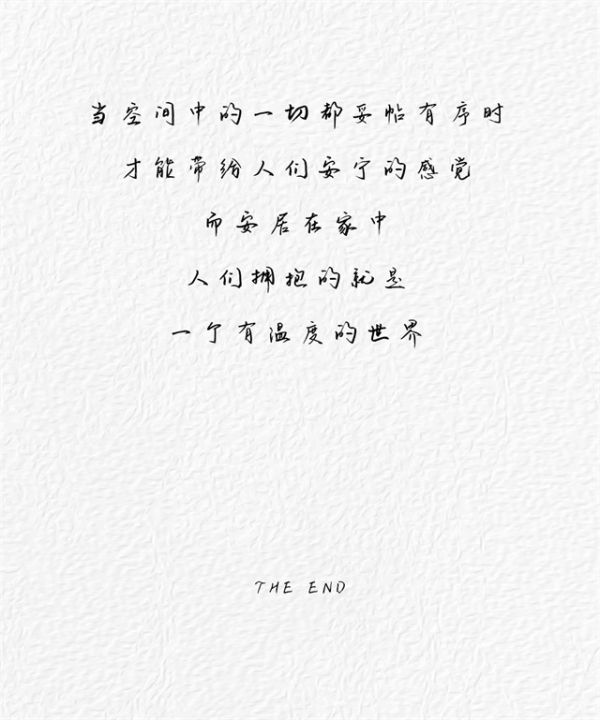 当空间中的一切都妥帖有序时
才能带给人们安宁的感觉
而安居在家中
人们拥抱的就是
一个有温度的世界
THE END